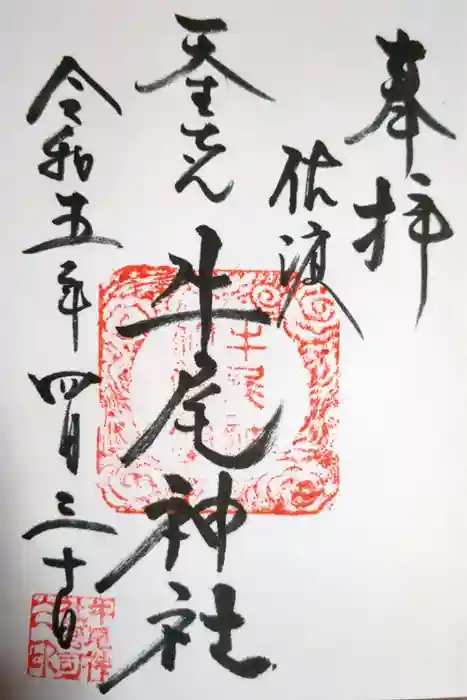 奉拝
佐渡
天王さん
牛尾神社
令和五年四月三十日
牛尾神
社宮司
之印